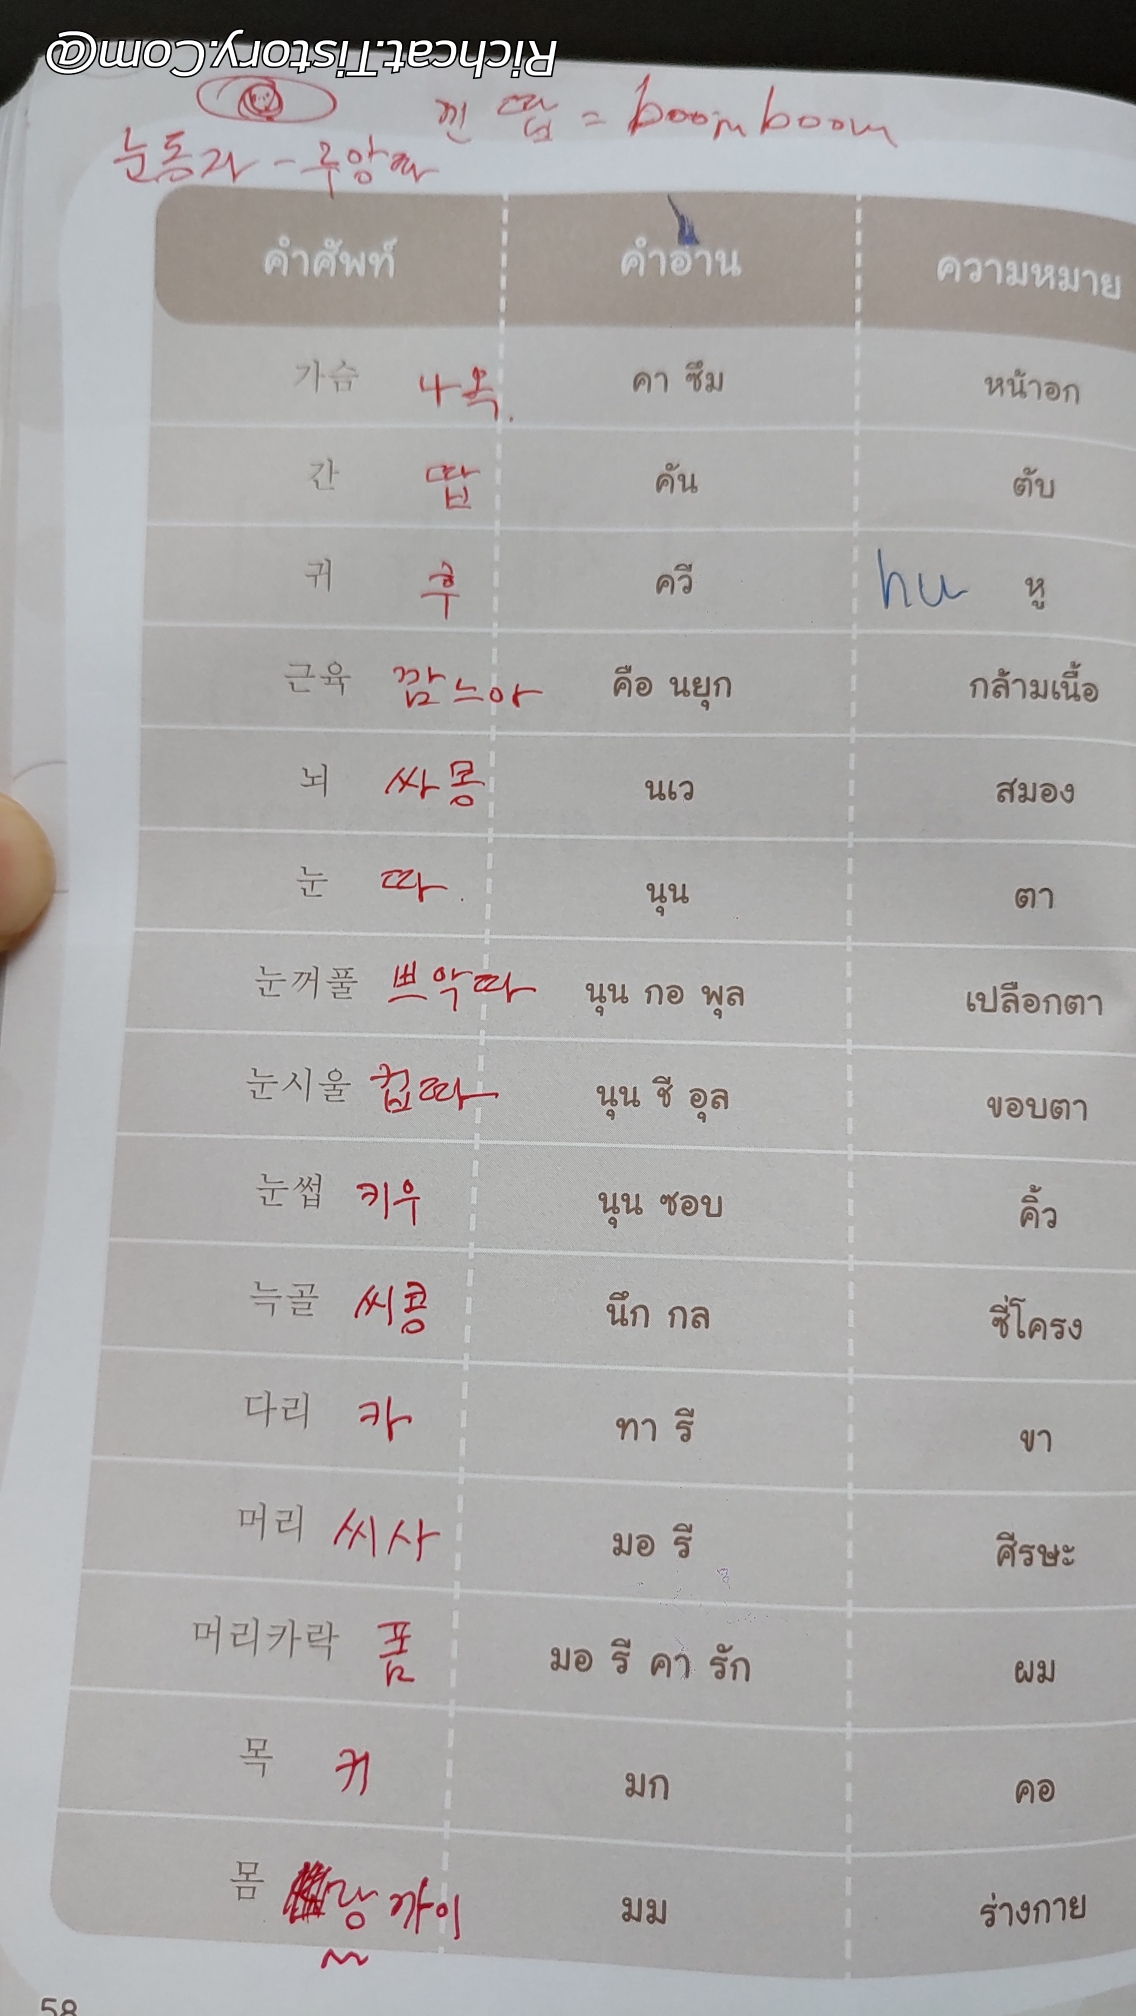 Richcat.Tistory.Com@
낀 땁 = boom boom
눈동자 - 루앙따
คำศัพท์ คำอ่าน ความหมาย
가슴 나옥. คา ซึม หน้าอก
간 땁 คัน ตับ
귀 후 ควี hu หู
근육 깜느아 คือ นยุก กล้ามเนื้อ
뇌 싸몽 นเว สมอง
눈 따 นุน ตา
눈꺼풀 쁘악따 นุน กอ พุล เปลือกตา
눈시울 컵따 นุน ชี อุล ขอบตา
눈썹 키우 นุน ซอบ คิ้ว
늑골 씨콩 นึก กล ซี่โครง
다리 카 ทา รี ขา
머리 씨사 มอ รี ศีรษะ
머리카락 폼 มอ รี คา รัก ผม
목 커 มก คอ
몸 랑까이 มม ร่างกาย
58